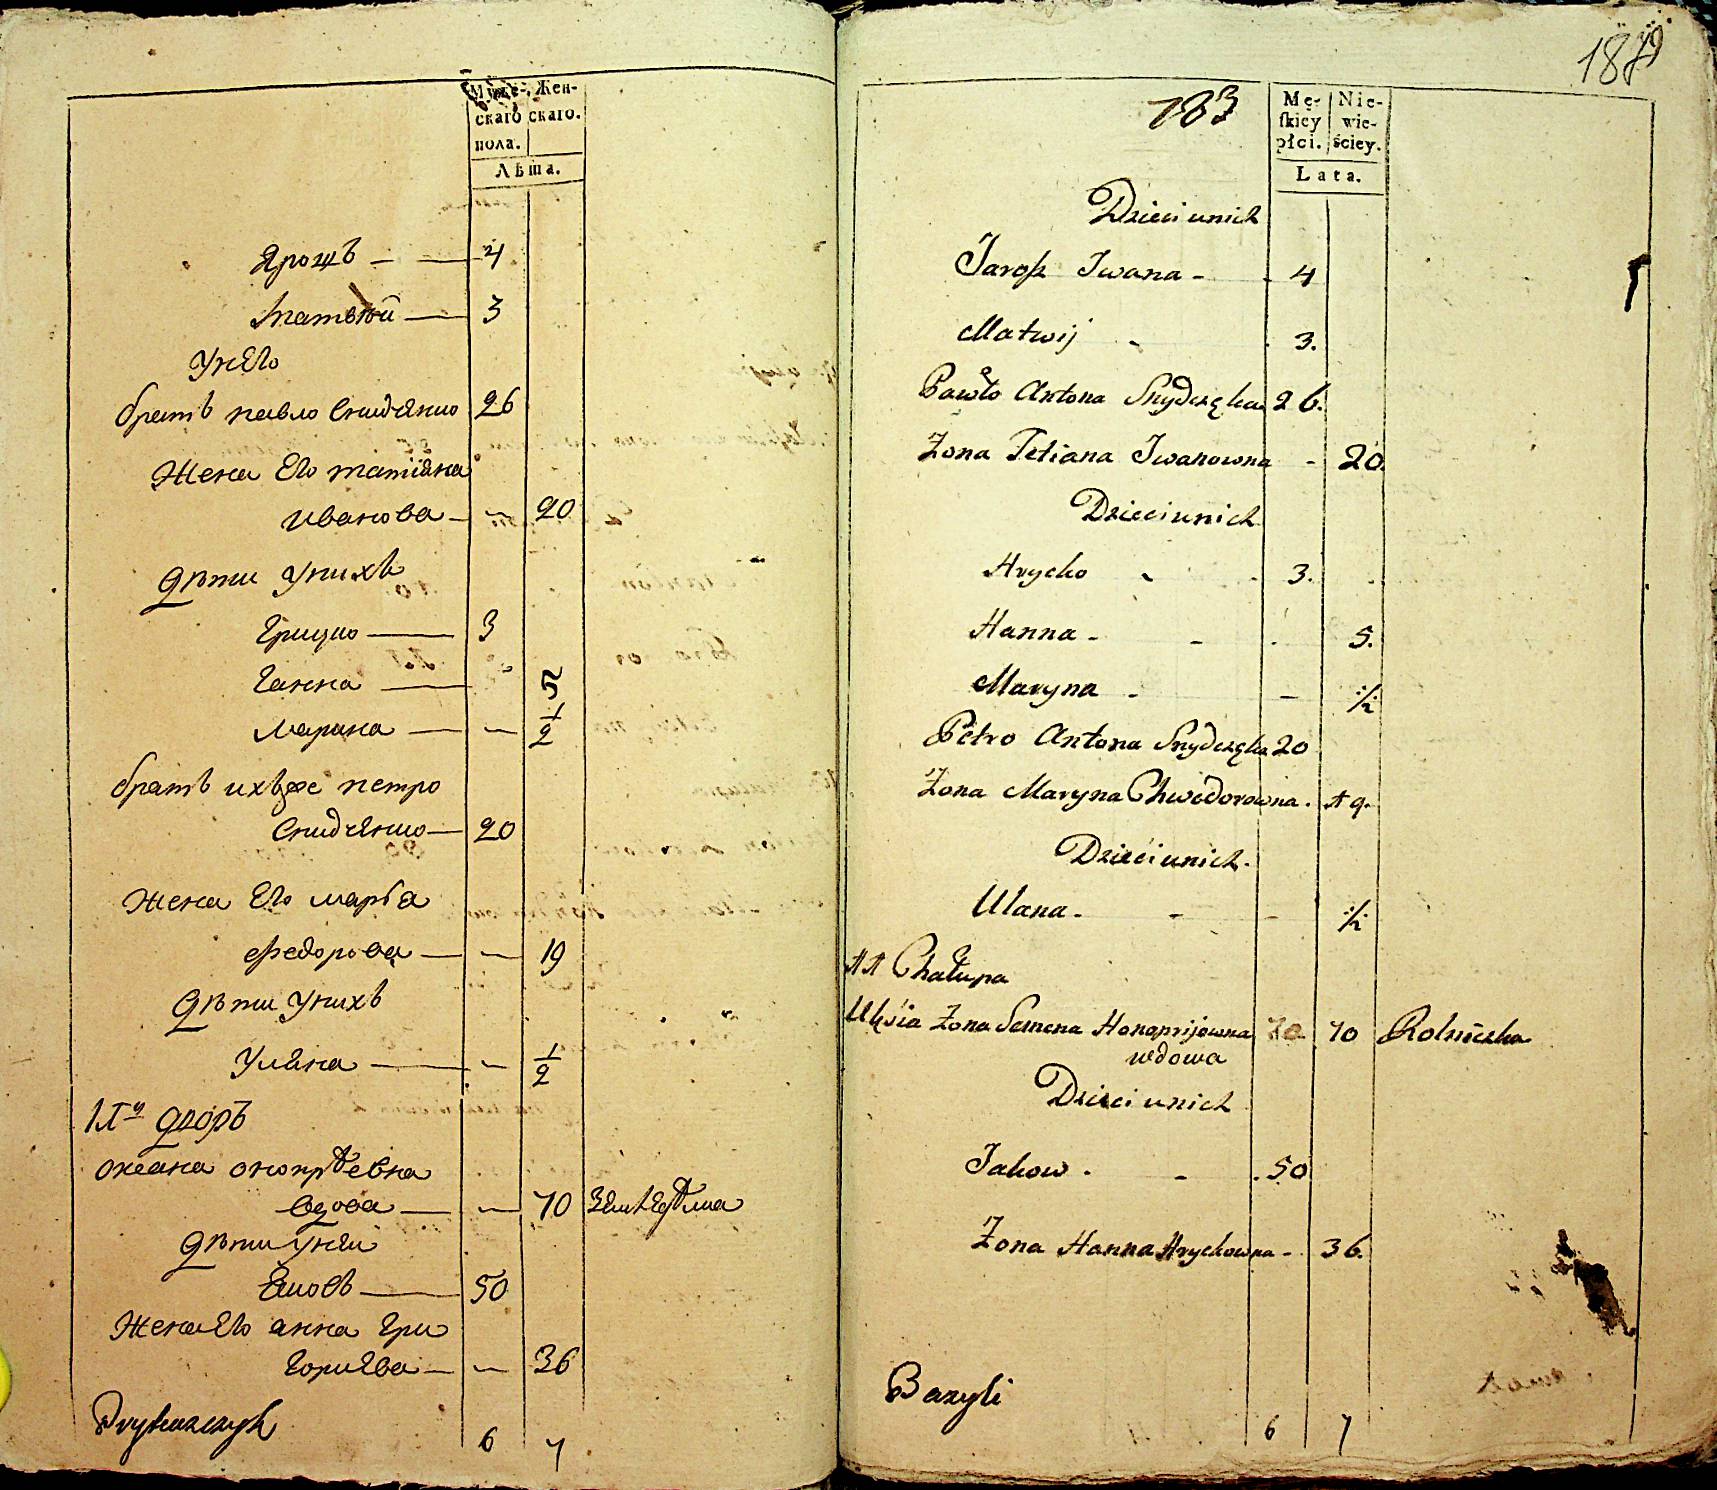 Муже- Жен-
скаго скаго.
пола.
Лѣта.
Ярошъ — — 4
Матвѣй — 3
У него
братъ павло Снидченко 26
Жена Его татіяна
Иванова — — 20
Дѣти Унихъ
Грицко — 3
Ганна — 5
Марина — — 1/2
братъ ихъ же петро
Снидченко — 20
Жена Его марья
Федорова — — 19
Дѣти Унихъ
Уляна — — 1/2
11й дворъ
оксана онопрѣевна
вдова — — 70
Дѣти Унеи
Яковъ — 50
Жена Его анна Гри
горіева — — 36
6 7
183
Mę- Nie-
skiey wie-
płci. ściey.
Lata.
Dzieci unich
Jarosz Iwana - - 4
Matwij - - 3.
Pawło Antona Snydczęka 26.
Żona Tetiana Iwanowna - 20.
Dzieci unich
Hrycko - - 3.
Hanna - - - 5.
Maryna - - 1/2
Petro Antona Snydczęka 20
Żona Maryna Chwedorowna. 19.
Dzieci unich.
Ulana - - - 1/2
11 Chałupa
Uksia Żona Semena Honoprijowna 70 70 Rolniczka
wdowa
Dzieci unich
Jakow - - - 50
Żona Hanna Hryckowna - 36.
Bazyli
6 7